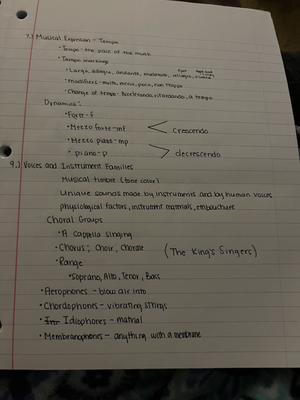 7.) Musical Expression - Tempo
• Tempo - the pace of the music
• Tempo markings
• Largo, adagio, andante, moderato, allegro,
• modifiers - molto, meno, poco, non troppo
• Change of tempo - Accelerando, ritardando, a tempo
Dynamics:
• Forte - f
• Mezzo forte - mf
crescendo
• Mezzo piano - mp
• piano - p
decrescendo
9.) Voices and Instrument Families
Musical timbre (tone color)
Unique sounds made by instruments and by human voices
physiological factors, instrument materials, embouchure
Choral Groups
• A cappella singing
• Chorus; Choir, Chorale
(The King's Singers)
• Range
• Soprano, Alto, Tenor, Bass
• Aerophones - blow air into
• Chordophones - vibrating strings
• Idiophones - matrial
• Membranophones - anything with a membrane